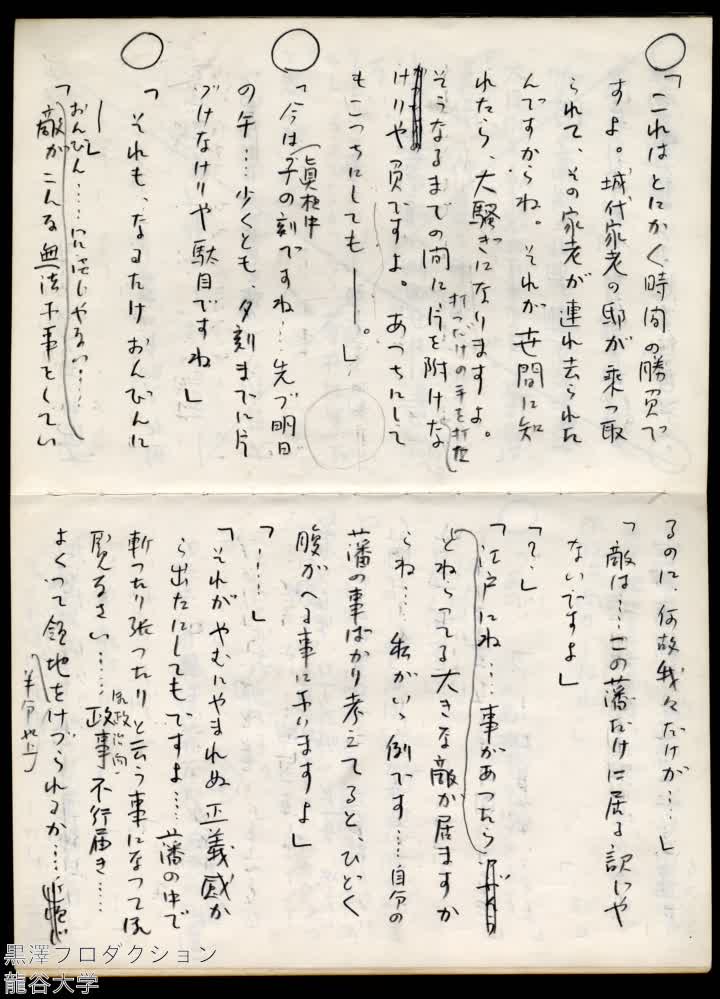 「これはとにかく時間の勝負で
すよ。城代家老の邸が乗つ取
られて、その家老が連れ去られた
んですからね。それが世間に知
れたら、大騒ぎになりますよ。
そうなるまでの間に片を附けな
打つだけの手を打
けりや負ですよ。あつちにして
もこつちにしても——。」
「今は子の刻ですね…先づ明日
の午…少くとも、夕刻までに片
づけなけりや駄目ですね」
「それも、なるたけおんびんに
——」
「おんびん……
敵がこんな無法な事をしてい
るのに、何故我々だけが…」
「敵は……この藩だけに居る訳ぢや
ないですよ」
「？」
「江戸にね……事があつたら
とねらつてる大きな敵が居ますか
らね…私がいゝ例です……自分の
藩の事ばかり考えてると、ひどく
腹がへる事になりますよ」
「……」
「それがやむにやまれぬ正義感か
ら出たにしてもですよ……藩の中で
斬つたり張つたりと云う事になつては
見るさい……政事不行届き……
よくつて領地をけづられるか……
半分以上
黒澤プロダクション
龍谷大学